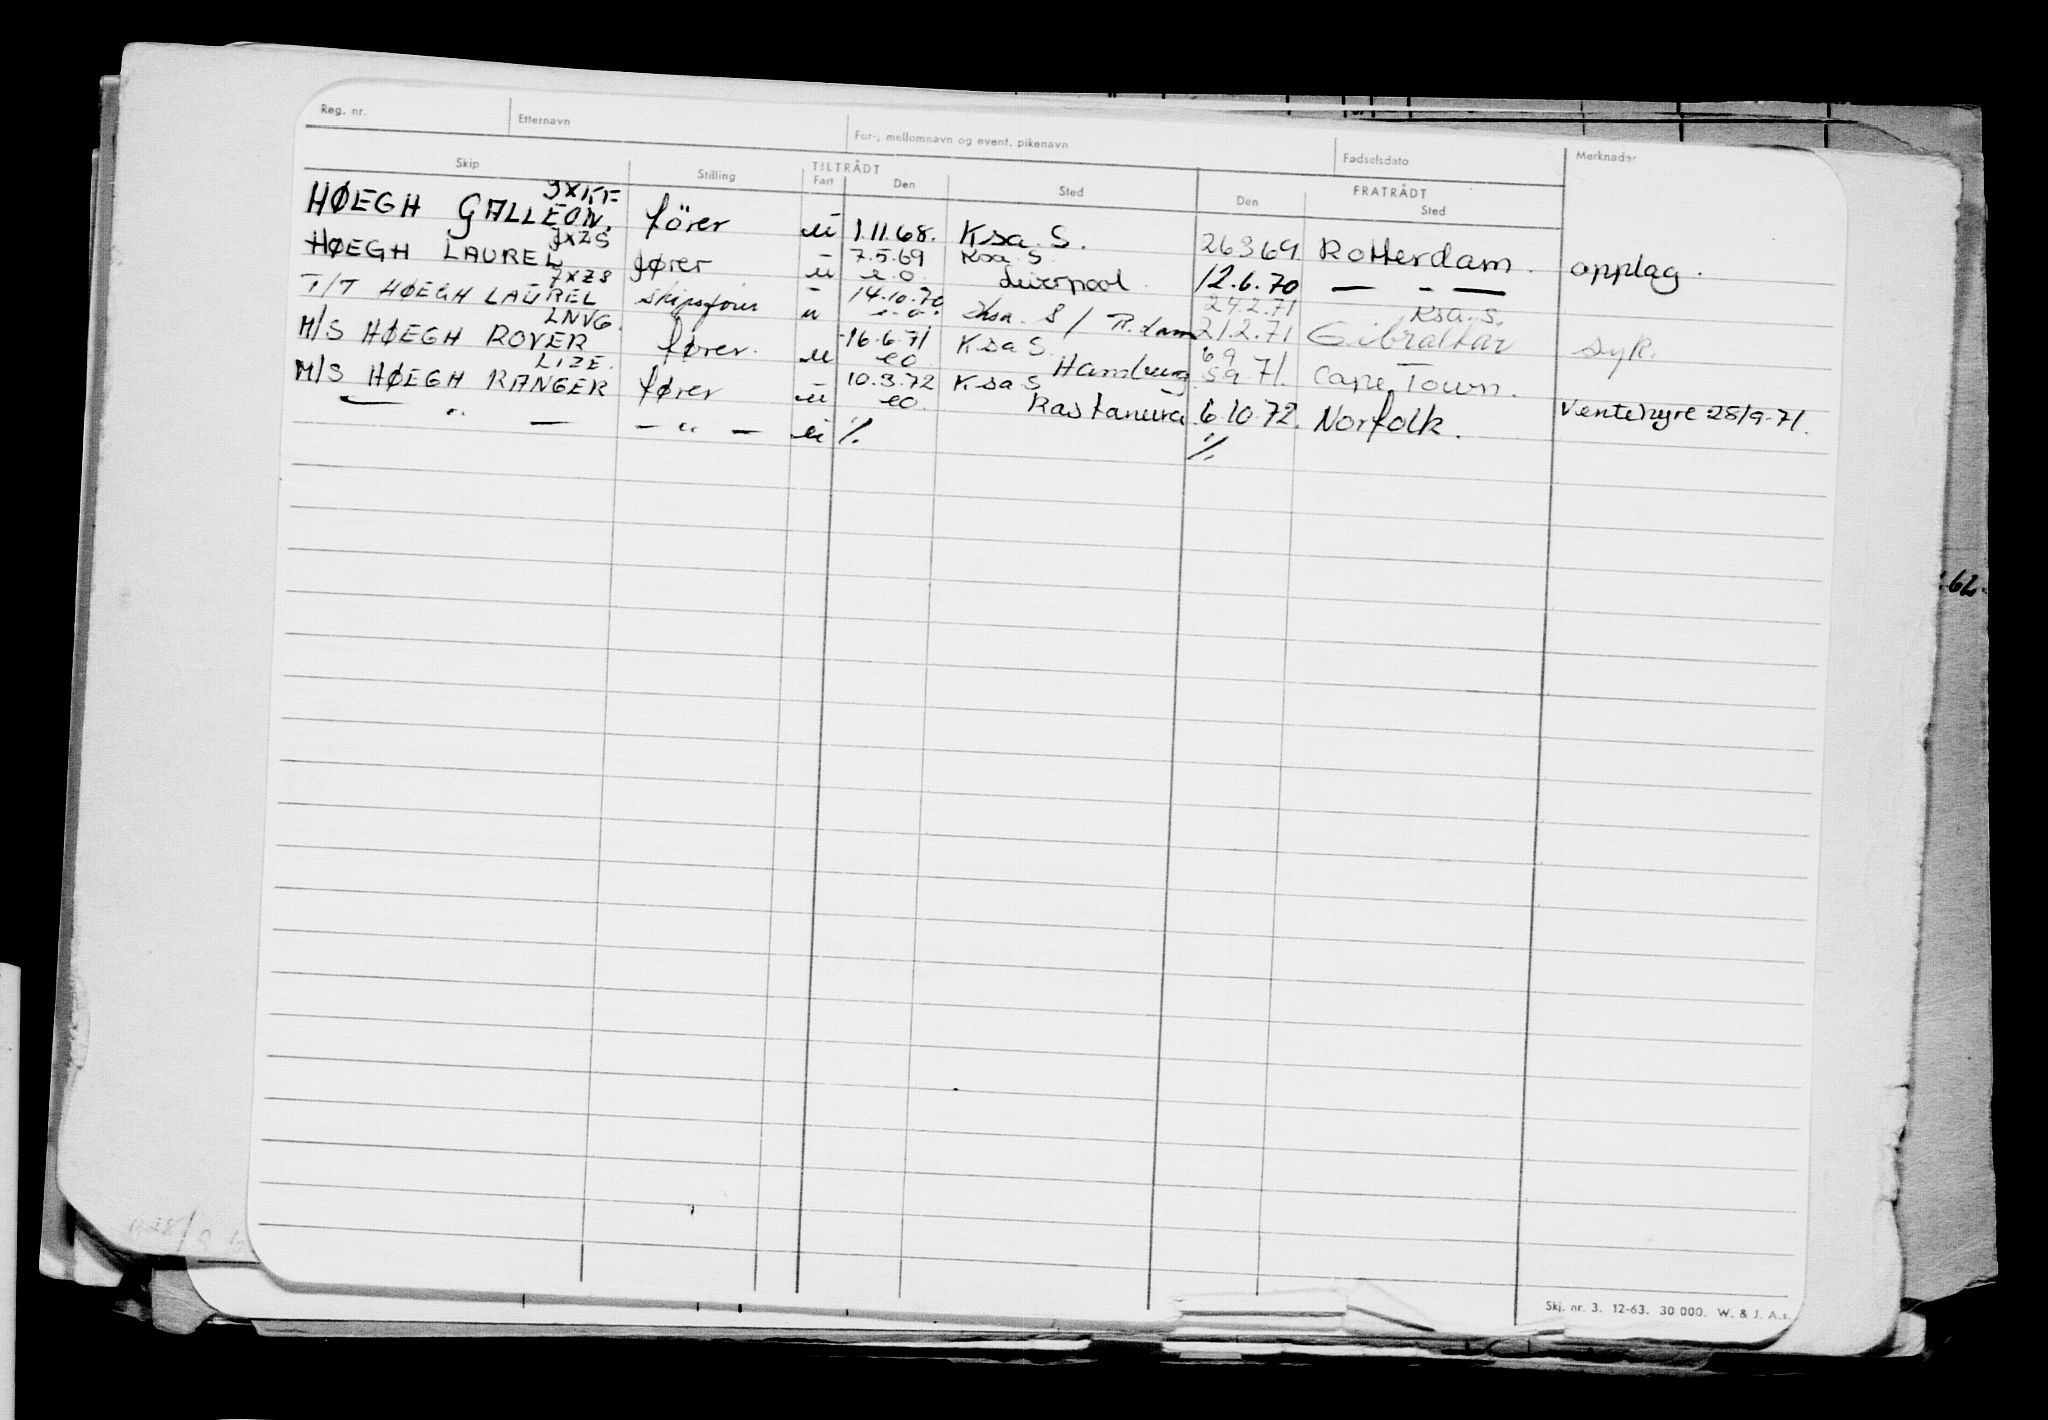 Reg. nr. Etternavn For-, mellomnavn og event. pikenavn Fødselsdato Merknader
Skip Stilling TILTRÅDT Fart Den Sted FRATRÅDT Den Sted
JXKF
HØEGH GALLEON. fører ū 1.11.68. Ksa. S. 26369 Rotterdam. opplag.
JXZS 7.5.69 Ksa. S.
HØEGH LAUREL fører ū e.o. Liverpool 12.6.70 — - —
JXZS 14.10.70 24.2.71 Ksa. S.
T/T HØEGH LAUREL skipsfører ū e.o. Ksa. S / R.dam 21.2.71 Gibraltar syk.
LNVG. 16.6.71 Ksa S. 69
M/S HØEGH ROVER fører. ū eo Hamburg 59.71. Cape Town.
LIZE. 10.3.72 Ksa S
M/S HØEGH RANGER fører ū eo. Ras Tanura 6.10.72. Norfolk. Ventehyre 28/9-71.
— " — — " — ū % %
.62.
Skj. nr. 3. 12-63. 30 000. W. & J. A.s.